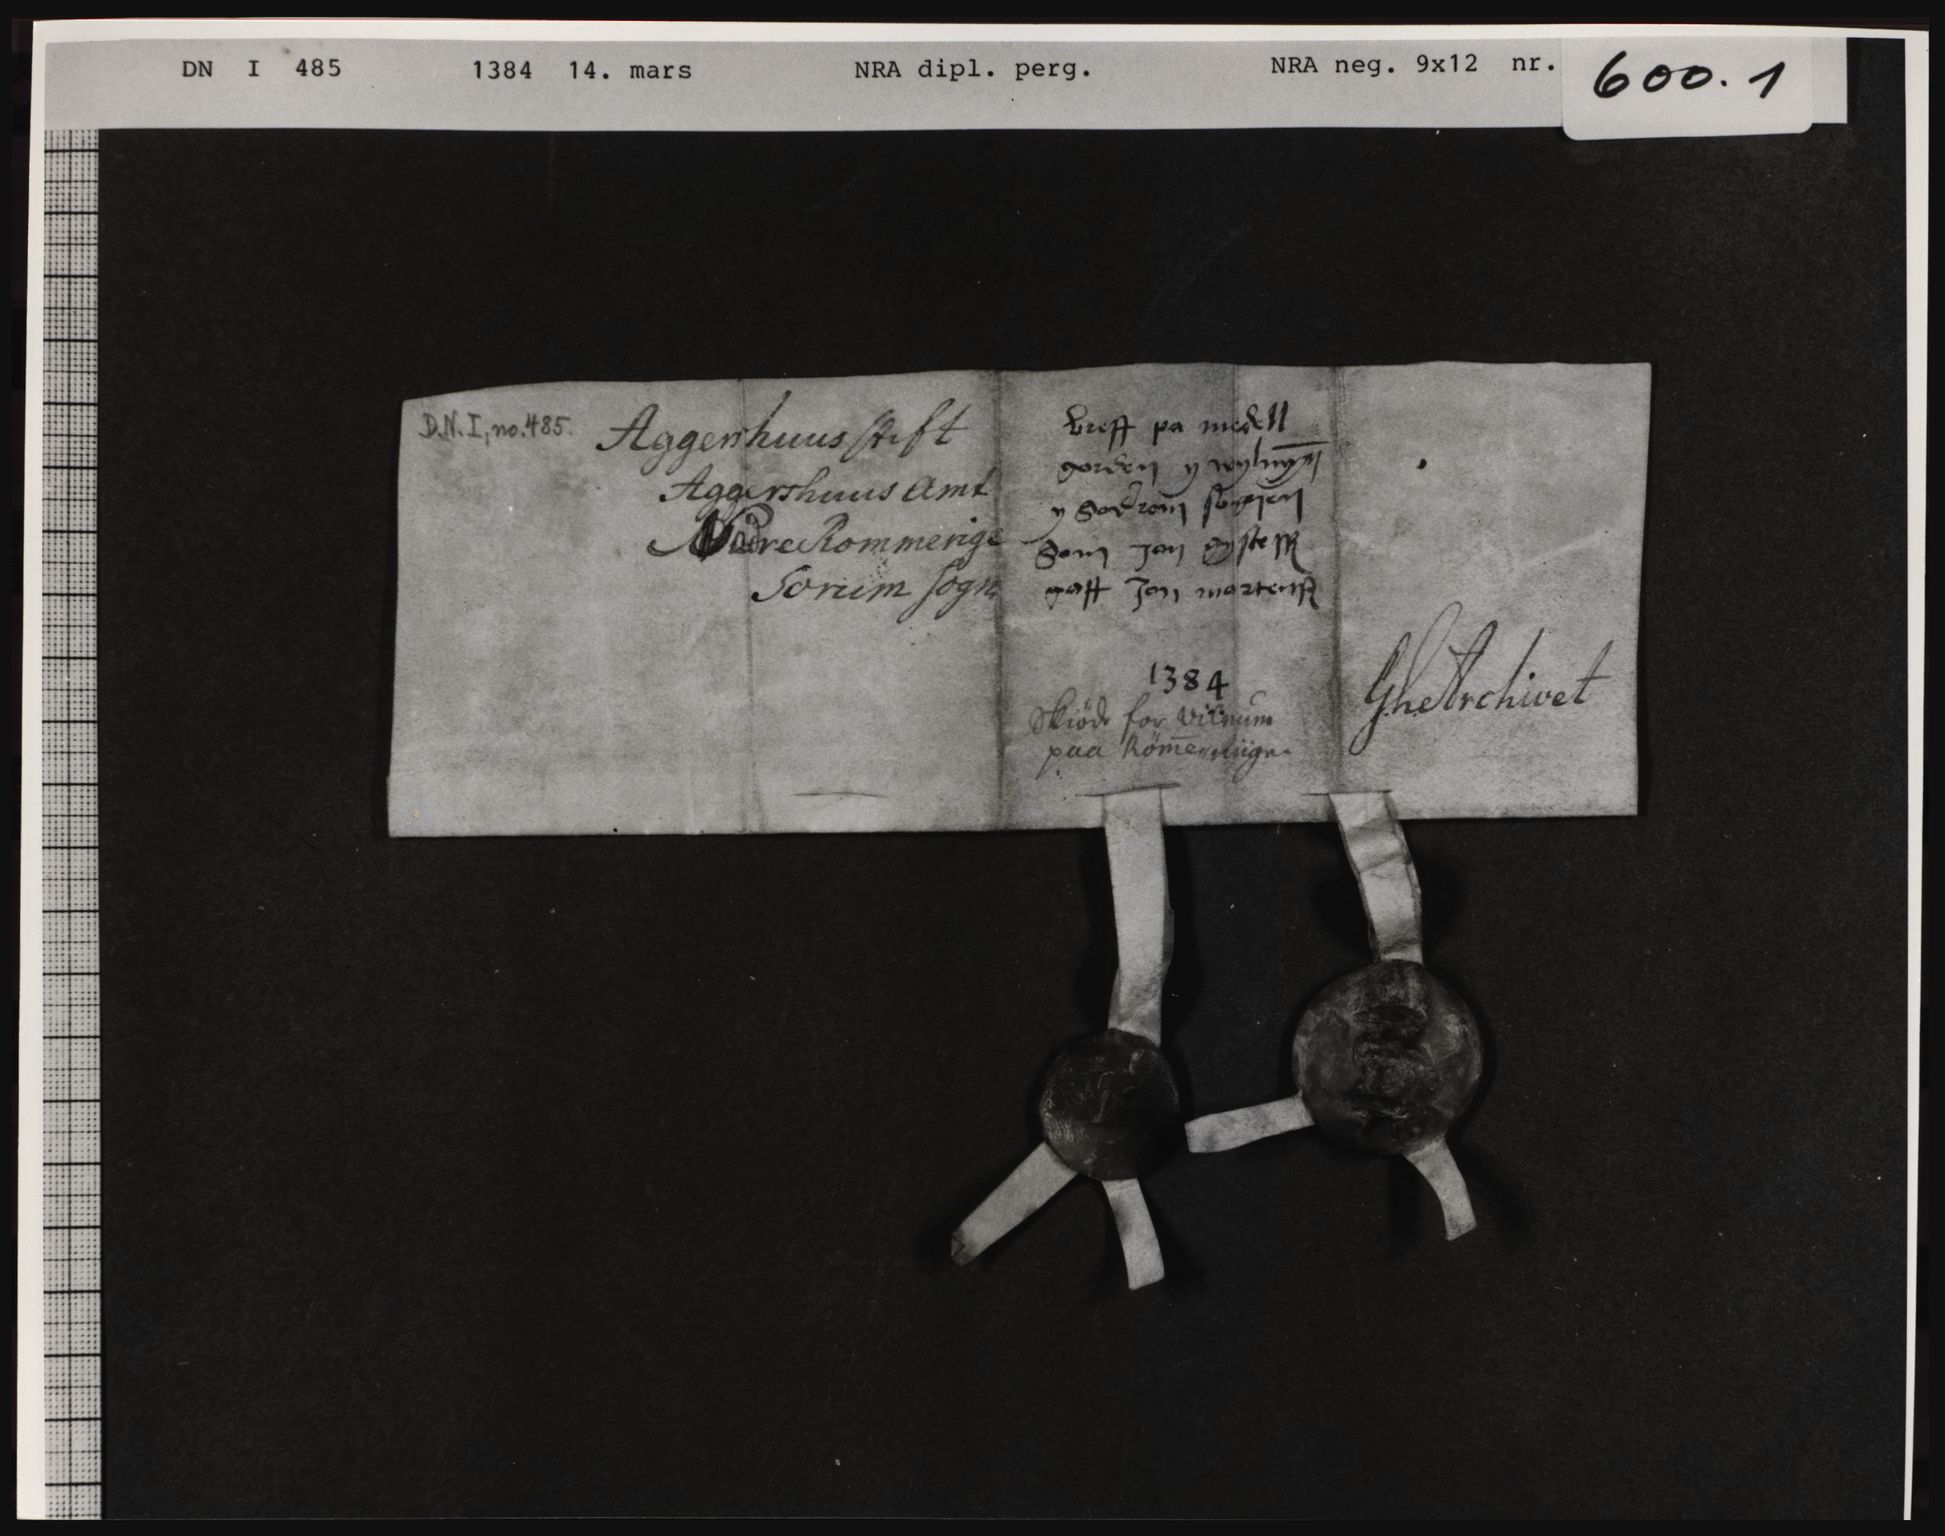 DN I 485 1384 14. mars NRA dipl. perg. NRA neg. 9x12 nr. 600.1
D.N. I, no. 485.
Aggershuus stift
Aggershuus Amt
Nedre Rommerige
Sorum sogn
breff pa medell
gorden y wylmyn
y Sodrom soghen
Som Jon
gaff Jon martenß
1384
Skiöde for Vilnum
paa Römeriige
Ghe Archivet